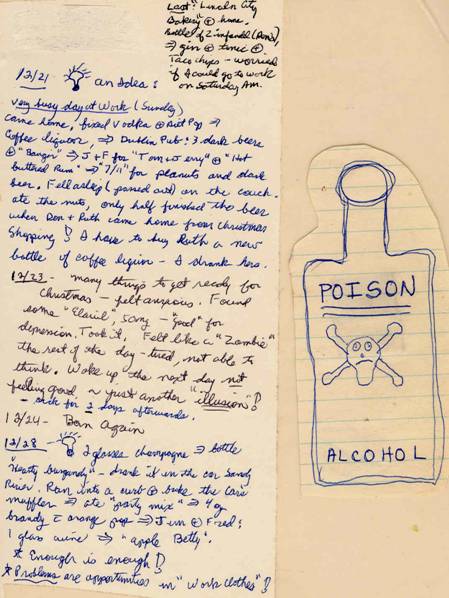 Last: "Lincoln City
Bakery" ⊕ home.
Bottle of Zinfandel (Don's)
⇒ gin ⊕ tonic ⊕
Taco chips - worried
if I could go to work
on Saturday A.M.
12/21 an Idea:
Very busy day at Work (Sunday)
came home, fixed Vodka ⊕ Diet Pop ⇒
Coffee liquor, ⇒ Dublin Pub: 3 dark beers
⊕ "Banger" ⇒ J+F for "Tom n Jerry" ⊕ "Hot
buttered Rum" ⇒ "7/11" for peanuts and dark
beer. Fell asleep (passed out) on the couch
ate the nuts, only half finished the beer
when Don + Ruth came home from Christmas
Shopping! I have to buy Ruth a new
bottle of coffee liquor - I drank hers.
12/23 - many things to get ready for
Christmas - felt anxious. Found
some "Elavil", "good" for
depression. Took it, Felt like a "Zombie"
the rest of the day - tired, not able to
think. Woke up the next day not
feeling good ~ just another "illusion"!
- sick for 2 days afterwards.
12/24 - Ban Again
12/28 2 glasses champagne ⇒ bottle
"Hearty burgundy" - drank it in the car Sandy
River. Ran into a curb ⊕ broke the cars
muffler ⇒ ate "party mix" ⇒ 4 oz
brandy c̄ orange pop ⇒ J im ⊕ F red:
1 glass wine ⇒ "apple Betty".
* Enough is enough!
* Problems are opportunities in "Work clothes"!
POISON
ALCOHOL